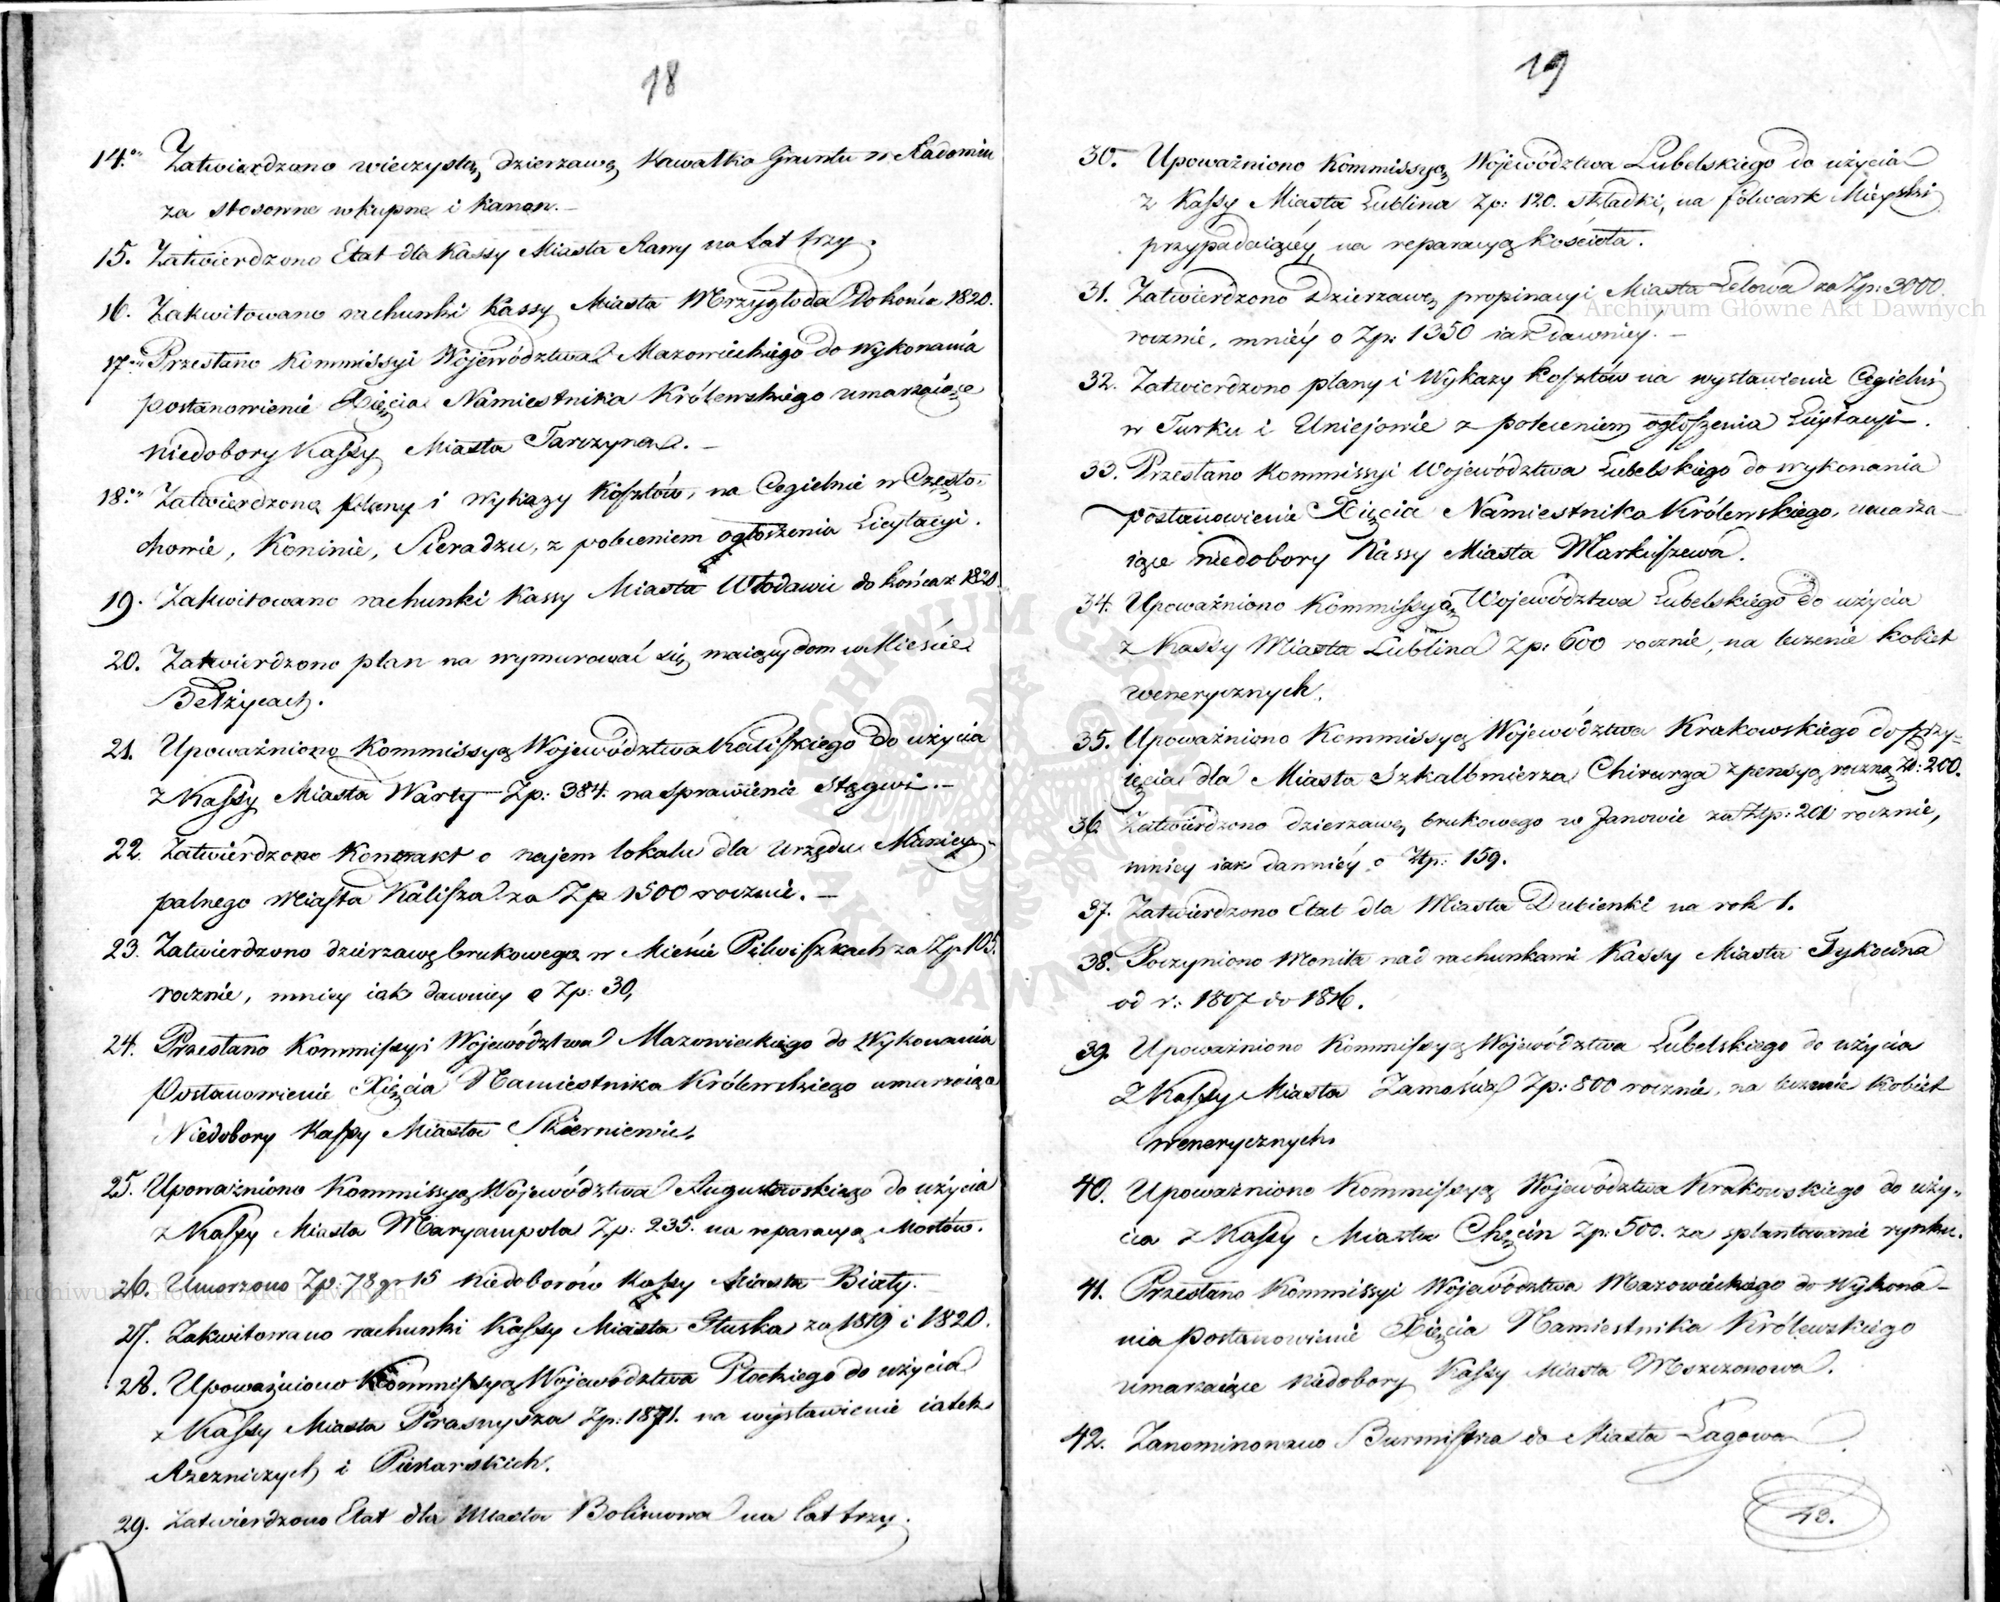 18
14.to Zatwierdzono wieczystą dzierzawę kawałka Gruntu w Radomiu
za stosowne wkupne i kanon.–
15. Zatwierdzono Etat dla Kassy Miasta Rawy na lat trzy.
16. Zakwitowano rachunki Kassy Miasta Mrzygłoda Do końca 1820.
17. Przesłano Kommissyi Województwa Mazowieckiego do wykonania
postanowienie Xięcia Namiestnika Królewskiego umarzaiące
niedobory Kassy Miasta Tarczyna.–
18. Zatwierdzono plany i wykazy Kosztów, na Cegielnie w Często-
chowie, Koninie, Sieradzu, z poleceniem ogłoszenia Licytacyi.
19. Zakwitowano rachunki Kassy Miasta Włodawie do końca r. 1820.
20. Zatwierdzono plan na wymurować się maiący dom w Mieście
Bełżycach.
21. Upoważniono Kommissyą Województwa Kaliskiego do użycia
z Kassy Miasta Warty Zp: 384. na sprawienie Stągwi.–
22. Zatwierdzono Kontrakt o najem lokalu dla Urzędu Municy-
palnego Miasta Kalisza za Zp 1500 rocznie.–
23. Zatwierdzono dzierzawę brukowego w Mieście Pilwiszkach za Zp 105.
rocznie, mniey iak dawniey o Zp: 30,
24. Przesłano Kommissyi Województwa Mazowieckiego do Wykonania
Postanowienie Xięcia Namiestnika Królewskiego umarzaiące
Niedobory Kassy Miasta Skierniewic.
25. Upoważniono Kommissyą Województwa Augustowskiego do użycia
z Kassy Miasta Maryampola Zp: 235. na reparacyą Mostów.
26. Umorzono Zp: 78 gr 15 Niedoborów Kassy Miasta Biały.–
27. Zakwitowano rachunki Kassy Miasta Głuska za 1819 i 1820.
28. Upoważniono Kommissyą Województwa Płockiego do użycia
z Kassy Miasta Prasnysza Zp: 1871. na wystawienie iatek
Rzezniczych i Piekarskich.
29. Zatwierdzono Etat dla Miasta Bolimowa na lat trzy.
19
30. Upoważniono Kommissyą Województwa Lubelskiego do użycia
z Kassy Miasta Lublina Zp: 120. składki, na folwark Mieyski
przypadaiącéy, na reparacyą kościoła.
31. Zatwierdzono Dzierzawę propinacyi Miasta Lelowa za Zp: 3000
rocznie, mniéy o Zp: 1350 iak dawniey.–
32. Zatwierdzono plany i Wykazy kosztów na wystawienie Cegielni
w Turku i Uniejowie z poleceniem ogłoszenia Licytacyi.
33. Przesłano Kommissyi Województwa Lubelskiego do wykonania
postanowienie Xięcia Namiestnika Królewskiego, umarza-
iące niedobory Kassy Miasta Markuszewa.
34. Upoważniono Kommissyą Województwa Lubelskiego do użycia
z Kassy Miasta Lublina Zp: 600 rocznie, na leczenie kobiet
wenerycznych.
35. Upoważniono Kommissyą Województwa Krakowskiego do przy-
ięcia dla Miasta Szkalbmierza Chirurga z pensyą roczną Zł: 200.
36. Zatwierdzono dzierzawę brukowego w Janowie za Złp: 201 rocznie,
mniey iak dawniéy o Złp: 159.
37. Zatwierdzono Etat dla Miasta Dubienki na rok 1.
38. Poczyniono Monita nad rachunkami Kassy Miasta Tykocina
od r: 1807 do 1816.
39. Upoważniono Kommissyą Województwa Lubelskiego do użycia
z Kassy Miasta Zamościa Zp: 800 rocznie, na leczenie kobiet
wenerycznych.
40. Upoważniono Kommissyą Województwa Krakowskiego do uży-
cia z Kassy Miasta Chęcin Zp: 500. za splantowanie rynku.
41. Przesłano Kommissyi Województwa Mazowieckiego do Wykona-
nia postanowienie Xięcia Namiestnika Królewskiego
umarzaiące niedobory Kassy Miasta Mszczonowa.
42. Zanominowano Burmistrza do Miasta Łagowa.
43.
Archiwum Główne Akt Dawnych
Archiwum Główne Akt Dawnych
ARCHIWUM GŁÓWNE AKT DAWNYCH